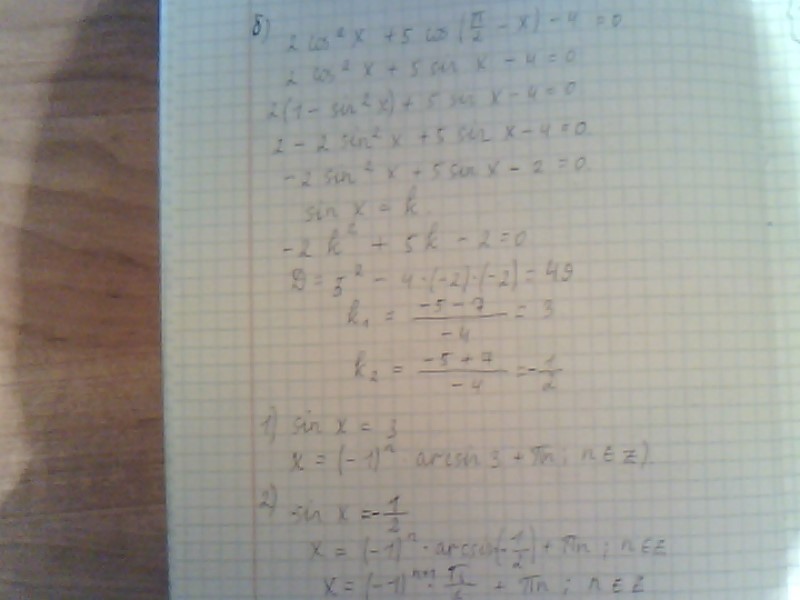 б) 2 cos² x + 5 cos (π/2 - x) - 4 = 0
2 cos² x + 5 sin x - 4 = 0
2(1 - sin² x) + 5 sin x - 4 = 0
2 - 2 sin² x + 5 sin x - 4 = 0
-2 sin² x + 5 sin x - 2 = 0
sin x = k
-2 k² + 5k - 2 = 0
D = 5² - 4·(-2)·(-2) = 49
k₁ = (-5 - 7)/(-4) = 3
k₂ = (-5 + 7)/(-4) = -1/2
1) sin x = 3
x = (-1)ⁿ arcsin 3 + πn ; n ∈ Z)
2) sin x = -1/2
x = (-1)ⁿ · arcsin(-1/2) + πn ; n ∈ Z
x = (-1)ⁿ⁺¹ · π/6 + πn ; n ∈ Z